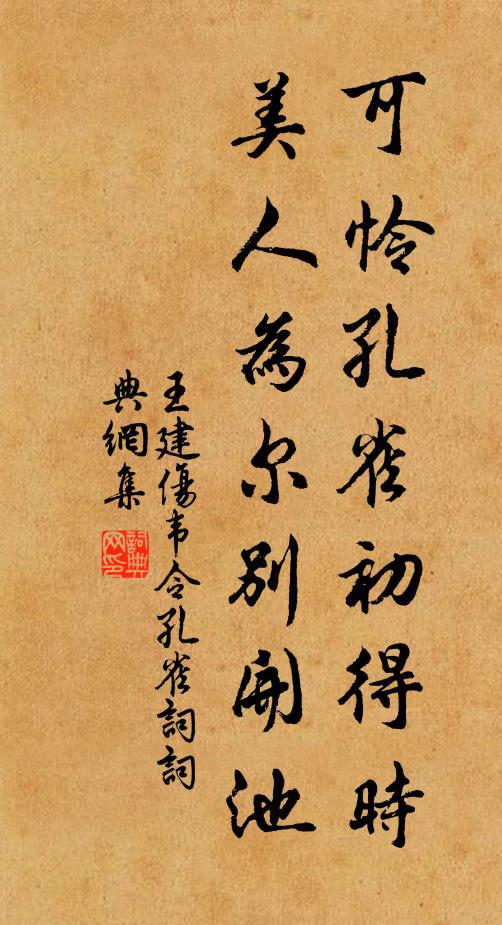 可怜孔雀初得時
美人為尔別開池
王建傷韦令孔雀詞詞
典網集
詞典网印